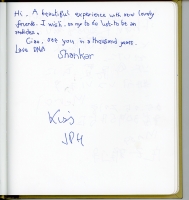 Hi. A beautiful experience with new lovely
friends. I wish to be an
Ciao, see you in a thousand years.
Love DNA
Shankar
Kris
JP4